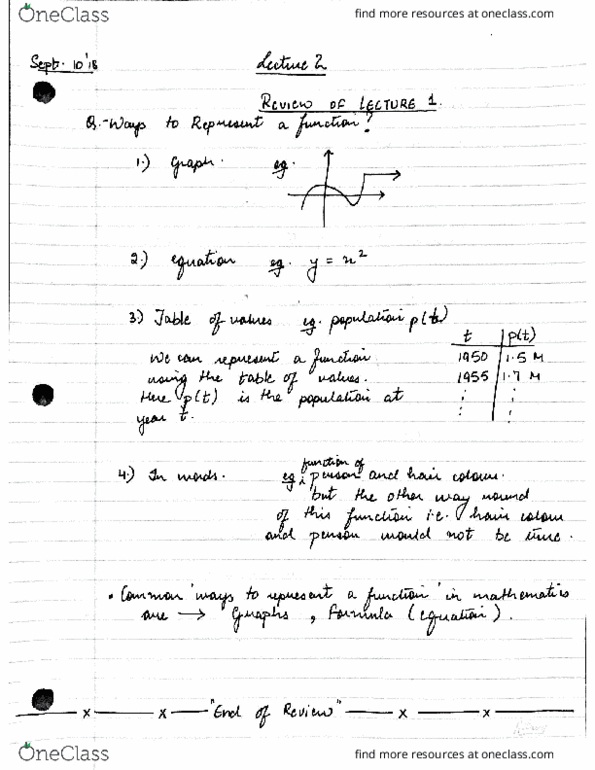 OneClass
find more resources at oneclass.com
Sept. 10 '18
Lecture 2
REVIEW OF LECTURE 1.
Q.- Ways to Represent a function?
1.) Graph. eg.
2.) equation eg. y = x²
3.) Table of values eg. population p(t)
t p(t)
We can represent a function 1950 1.5 M
using the table of values. 1955 1.7 M
Here p(t) is the population at : :
year t. : :
4.) In words. eg. function of person and hair colour.
but the other way round
of this function i.e. hair colour
and person would not be true.
• Common 'ways to represent a function' in mathematics
are → Graphs, Formula (equation).
x x "End of Review" x x
OneClass
find more resources at oneclass.com